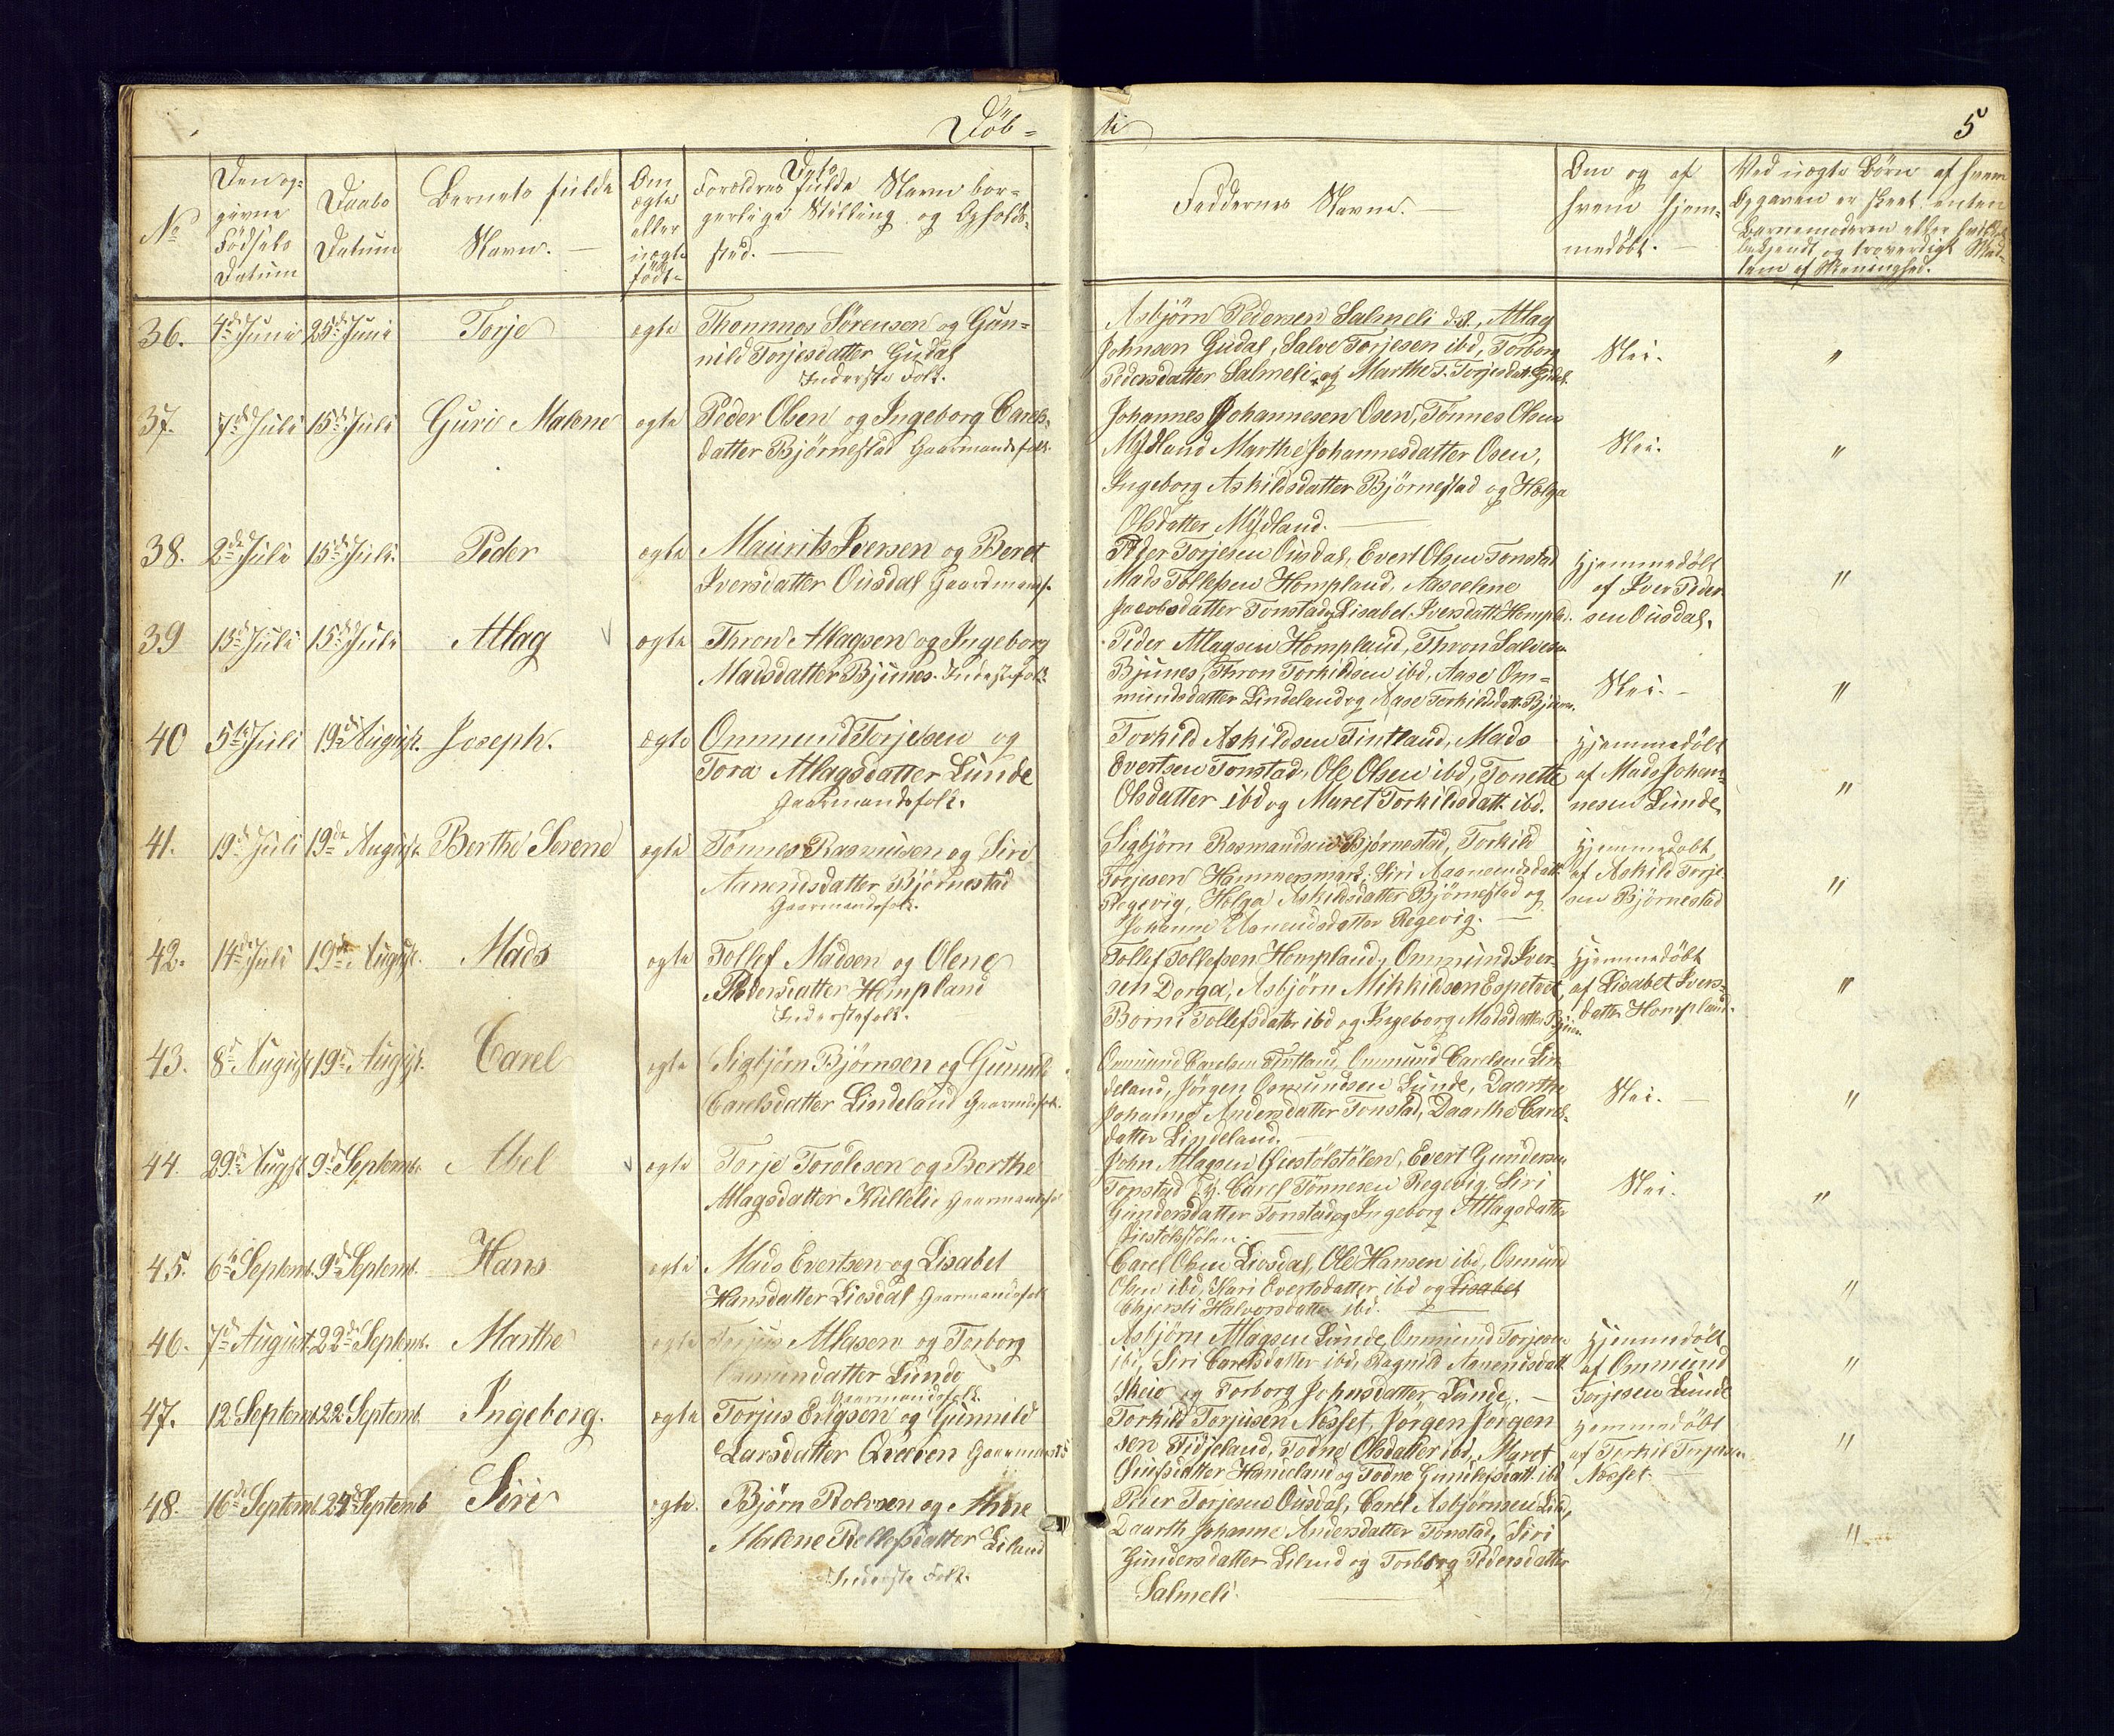 Döb=
ti
5
No
Den op=
givne
Födsels
Datum
Daabs
Datum
Barnets fulde
Navn.
Om
ægte
eller
uægte
födt
Dets
Forældres fulde Navn bor=
gerlige Stilling og Opholds-
sted.
Faddernes Navne.
Om og af
hvem hjem=
medöbt.
Ved uægte Börn af hvem
Opgaven er skeet, enten
Barnemoderen eller
bekjendt og troværdigt Med=
lem af Menighed.
36. 4de Juni 25de Juni Torje ægte
Thommes Sørensen og Gun=
nild Torjesdatter Gudal
Inderste Folk.
Asbjörn Pedersen Salmeli d.S., Atlag
Johnsen Gudal, Salve Torjesen ibd, Torborg
Pedersdatter Salmeli og Marthe T. Torjesdatt. Gudal.
Nei. "
37. 7de Juli 15de Juli Guri Malene ægte
Peder Olsen og Ingeborg Carels-
datter Björnestad Gaarmandsfolk.
Johannes Johannesen Osen, Tönnes Olsen
Mydland Marthe Johannesdatter Osen,
Ingeborg Askildsdatter Björnestad og Helga
Olsdatter Mydland.
Nei. "
38. 2de Juli 15de Juli. Peder ægte
Maurits Iversen og Beret
Iversdatter Ousdal Gaardmansf.
Peder Torjesen Ousdal, Evert Olsen Tonstad
Mads Tollefsen Hompland, Aaselene
Jacobsdatter Tonstad og Lisabet Iversdatt. Hompld.
Hjemmedöbt
af Iver Peder
sen Ousdal.
"
39 13de Juli 15de Juli Atlag ægte
Thron Atlagsen og Ingeborg
Madsdatter Bjunes. Inderstefolk
Peder Atlagsen Hompland, Thron Salvesen
Bjunes, Thron Torkildsen ibd, Aase Om=
mundsdatter Lindeland og Aase Torkildsdatt. Bjunes.
Nei. "
40 5te Juli 19de August. Joseph. ægte
Ommund Torjesen og
Tora Atlagsdatter Lunde
Gaarmandsfolk.
Torkild Askildsen Fintland, Mads
Evertsen Tonstad, Ole Olsen ibd, Tonette
Olsdatter ibd og Maret Torkildsdatt ibd.
Hjemmedöbt
af Mads Johan=
nesen Lunde
"
41. 19de Juli 19de August. Berthe Serene ægte
Tönnes Rasmusen og Siri
Aanensdatter Björnestad
Gaarmandsfolk.
Sigbjörn Rosmandsen Björnestad, Torkild
Torjesen Hammersmark, Siri Aanensdatt.
Regevig, Helga Askildsdatter Björnestad og
Johanne Aanensdatter Regevig.
Hjemmedöbt
af Askild Torje
sen Björnestad
"
42. 14de Juli 19de August. Mads ægte
Tollef Madsen og Olene
Pedersdatter Hompland
Inderstefolk.
Tollef Tollefsen Hompland, Ommund Iver
sen Dorga, Asbjörn Mikkildsen Espetvet,
Borni Tollefsdatter ibd og Ingeborg Madsdatter Bjun.
Hjemmedöbt
af Lisabet Ivers=
datter Hompland.
"
43. 8de August 19de August. Carel ægte
Sigbjörn Björnsen og Gunnild
Carelsdatter Lindeland Gaarmdsfolk.
Ommund Carelsen Fintland, Ommund Carelsen Lin
deland, Jörgen Osmundsen Lunde, Daarthe
Johanne Andersdatter Tonstad, Daarthe Carels-
datter Lindeland.
Nei. "
44. 29de August 9de Septembr Abel ægte
Torje Torolesen og Berthe
Atlagsdatter Killelie Gaarmandsfo
John Atlagsen Qviestölstölen, Evert Gundersen
Tonstad, Carel Tönnesen Regevig, Siri
Gundersdatter Tonstad og Ingeborg Atlagsdatter
Qviestölstölen.
Nei. "
45. 6te Septemb. 9de Septemb. Hans ægte
Mads Evertsen og Lisabet
Hansdatter Liosdal Gaarmandsfolk
Carel Olsen Liosdal, Ole Hansen ibd, Osmund
Olsen ibd, Kari Evertsdatter ibd og Lisabet
Chjersti Halvorsdatter ibd.
"
46. 7de August 22de Septemb. Marthe ægte
Torjus Atlasen og Torborg
Ommundatter Lunde
Gaarmandsfolk
Asbjörn Atlagsen Lunde, Ommund Torjesen
ibd, Siri Carelsdatter ibd, Ragnild Aanensdatt
Skeie og Torborg Johnsdatter Lunde.
Hjemmedöbt
af Ommund
Torjesen Lunde
"
47. 12 Septemb 22 Septemb. Ingeborg. ægte
Torjus Erigsen og Gunnild
Larsdatter Qveven Gaarmands
Torkild Torjusen Nesset, Jörgen Jörgen
sen Fidjeland, Todne Olsdatter ibd, Maret
Gunsdatter Haneland og Todne Gunlefsdatt. ibd
Hjemmedöbt
af Torkil Torjusen
Nesset.
"
48. 16de Septemb. 24de Septemb Siri ægte.
Björn Rolvsen og Anne
Malene Rellefsdatter Liland
Inderste Folk.
Peder Torjesen Ousdal, Carl Asbjörnsen Lild,
Daarth Johanne Andersdatter Tonstad, Siri
Gundersdatter Lilund og Torborg Pedersdatter
Salmeli.
"